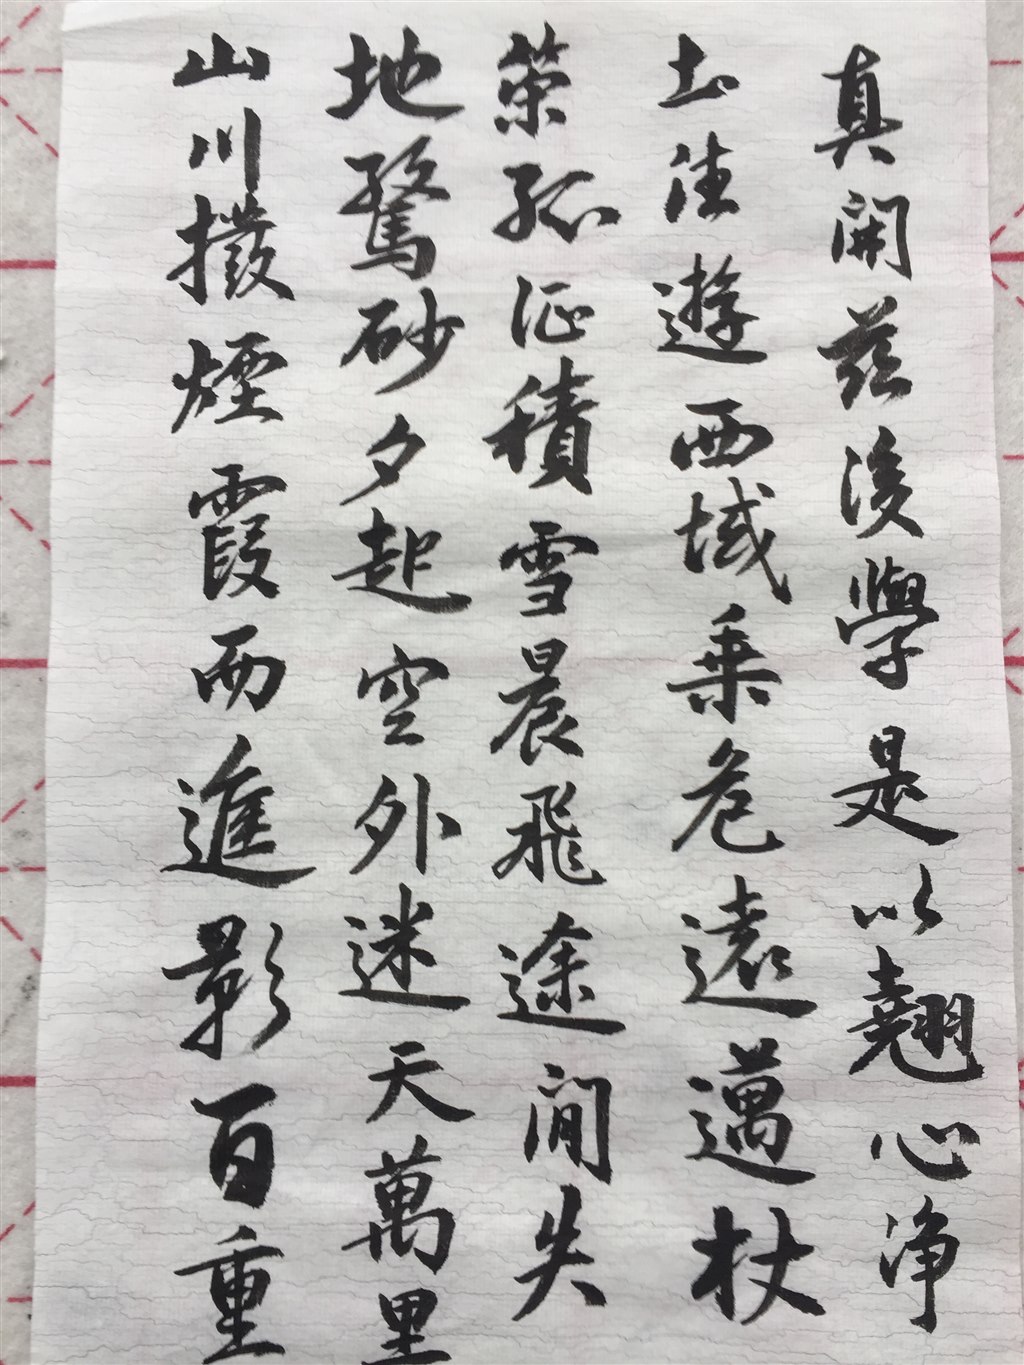 真開茲後學是以翹心淨
土法遊西域乗危遠邁杖
策孤征積雪晨飛途間失
地驚砂夕起空外迷天萬里
山川撥煙霞而進影百重